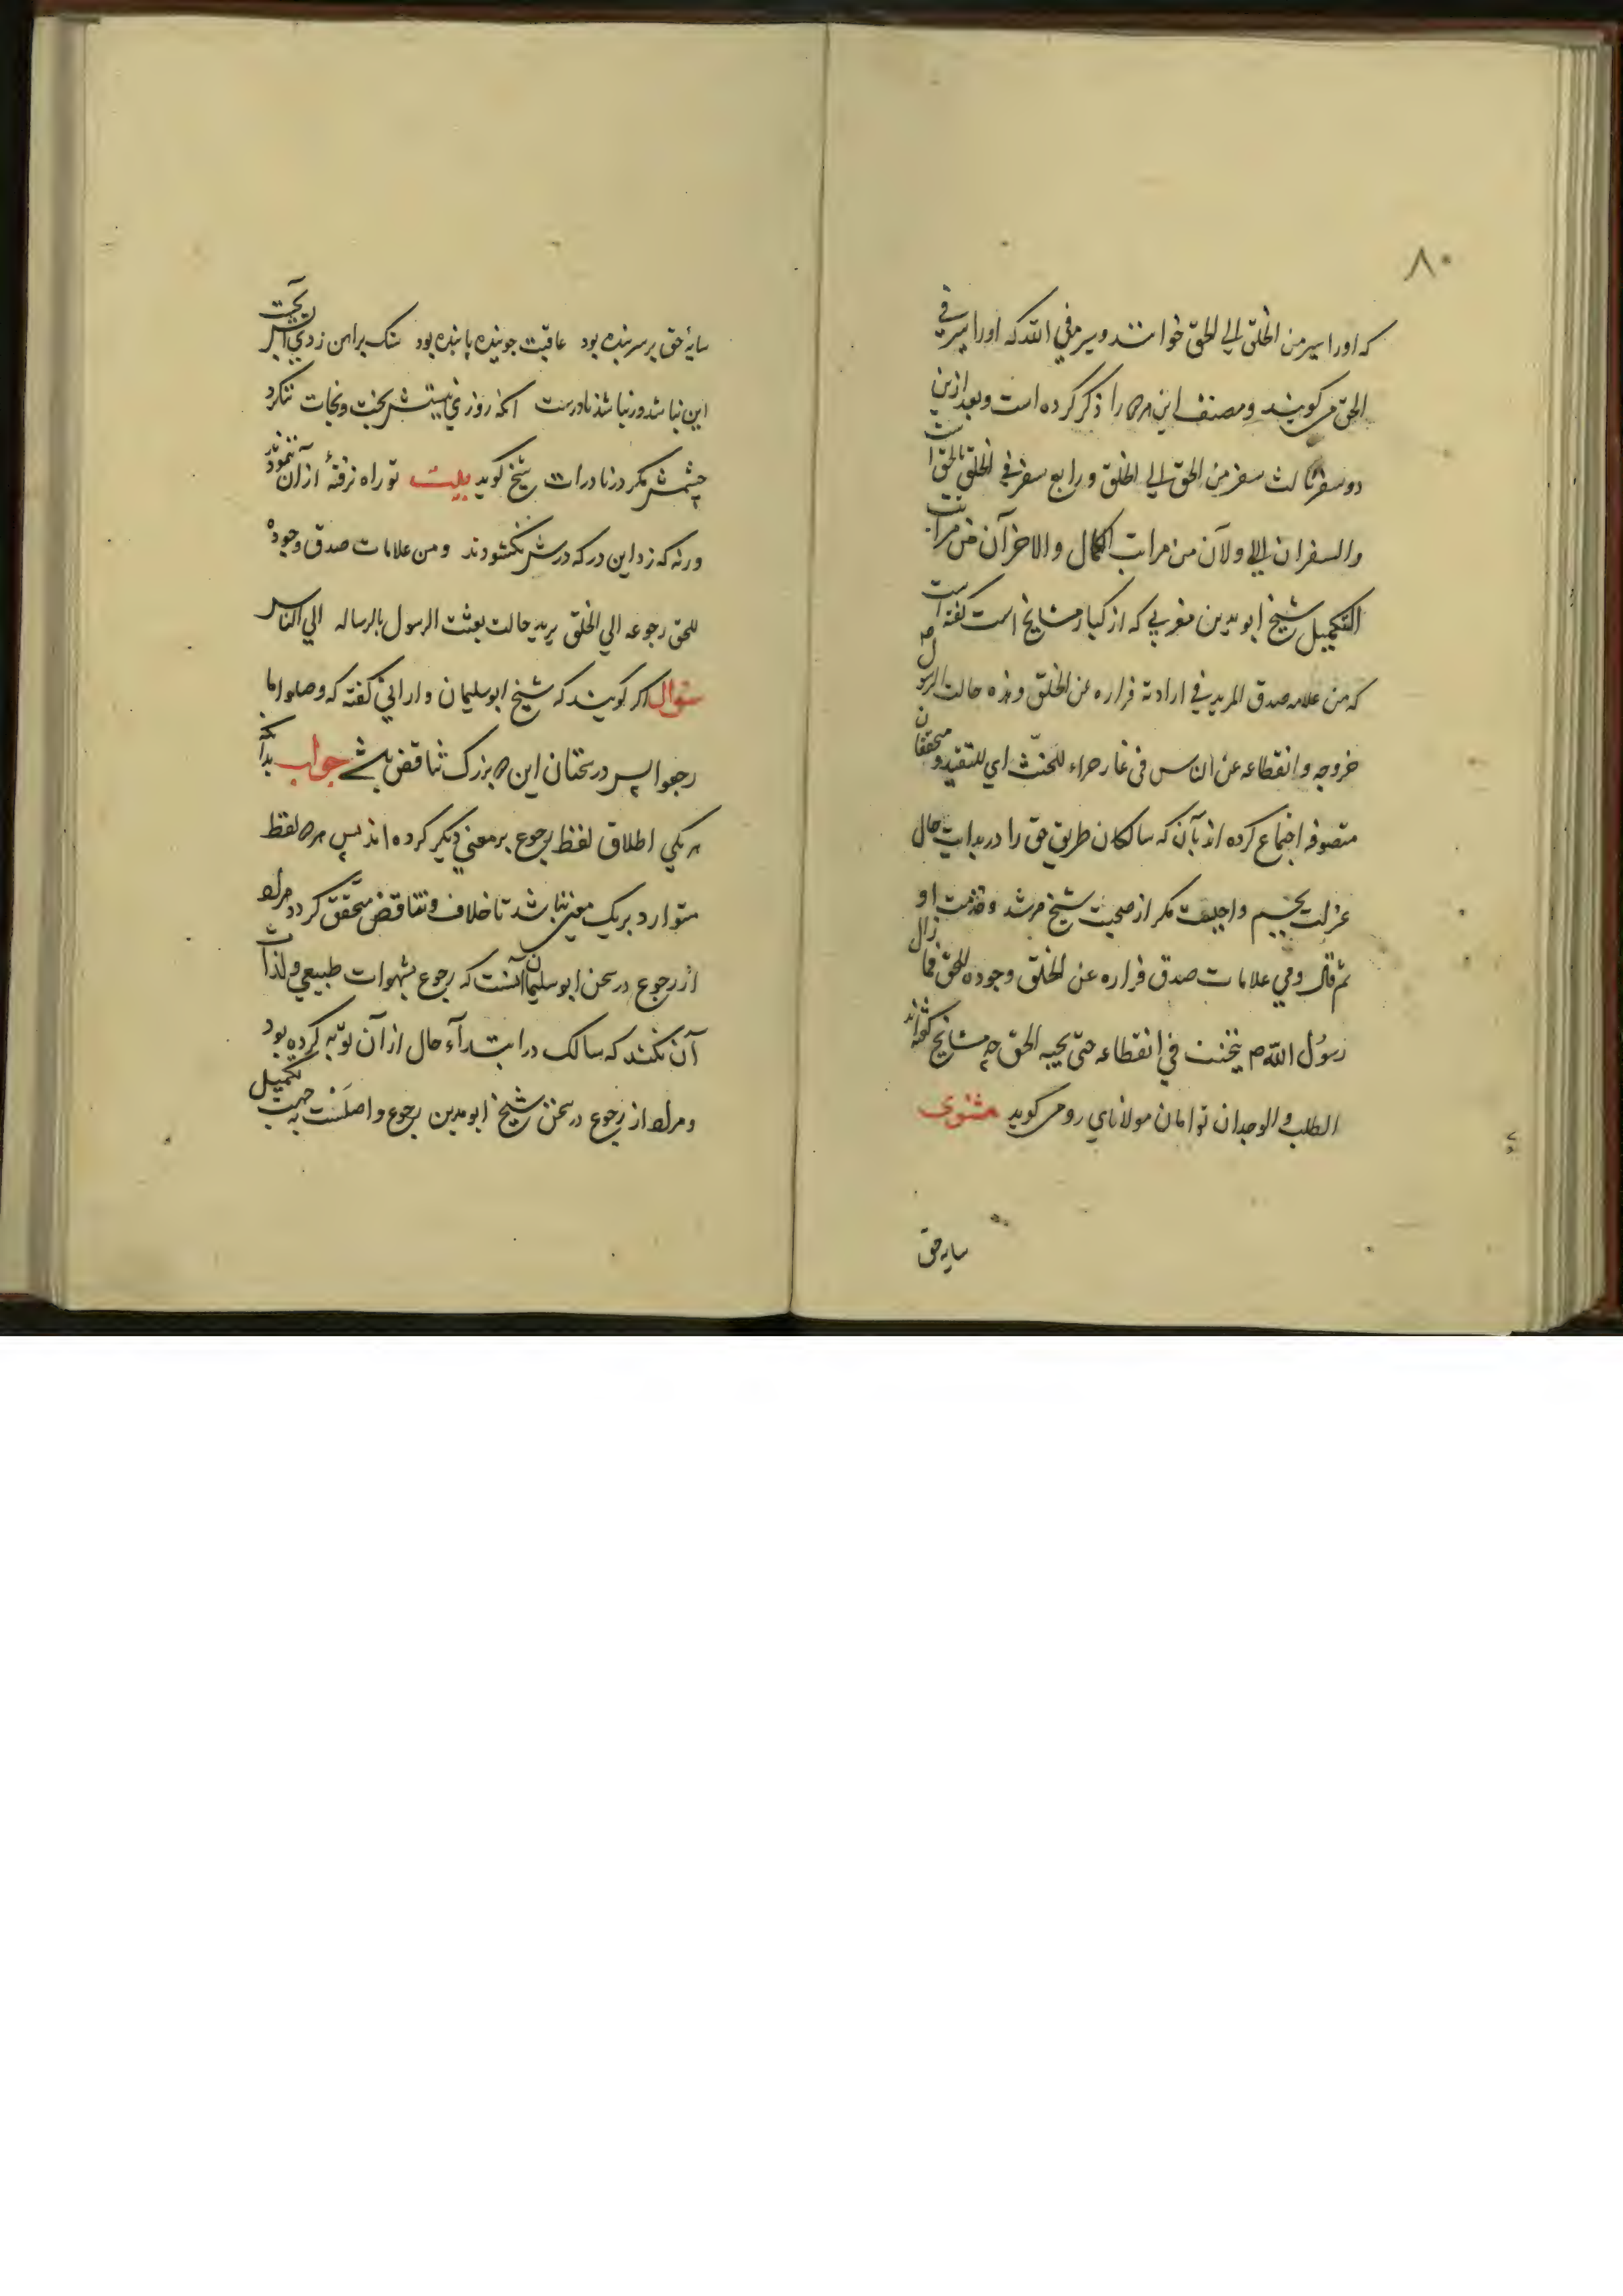 ۸۰
که او را سیر من الخلق الی الحق خوانند و سیر فی الله که او را سیر فی
الحق می کویند و مصنف این هر ۲ را ذکر کرده است و بعد ازین
دو سفر ثالث سفر من الحق الی الخلق و رابع سفر فی الخلق بالحق است
والسفران الاولان من مراتب الکمال والاخرآن من مراتب
التکمیل شیخ ابو مدین مغربی که از کبار مشایخ است کفته است
که من علامه صدق المرید فی ارادته فراره عن الخلق و هذه حالت الرسول صم
خروجه و انقطاعه عن الناس فی غار حراء للتحنّث ای للتقید و محققان
متصوفه اجماع کرده اند بآن که سالکان طریق حق را در بدایت حال
عزلت بجسم واجبست مکر از صحبت شیخ مرشد و خدمت او
ثم قال و من علامات صدق فراره عن الخلق وجوده للحق فما زال
رسول الله صم یتحنث فی انقطاعه حتی یجیه الحق چه مشایخ کفته اند
الطلب والوجدان توامان مولانای رومی کوید مثنوی
سایه حق
سایهٔ حق بر سر بنده بود عاقبت جوینده یابنده بود سنک بر اهن زدی آتش نجست
این نباشد ور نباشد نادرست انکه روزی نیستش بخت و نجات ننکرد
چشمش مکر در نادرات شیخ کوید بیت تو راه نرفتهٔ از آن ننمودند
ورنه که زد این در که درش نکشودند و من علامات صدق وجوده
للحق رجوعه الی الخلق یرید حالت بعثت الرسول بالرساله الی الناس
سوال اکر کویند که شیخ ابو سلیمان دارانی کفته که وصلوا ما
رجعوا پس در سخنان این ۲ بزرک تناقض باشد جواب بدآنکه
هر یکی اطلاق لفظ رجوع بر معنی دیکر کرده اند پس هر ۲ لفظ
متوارد بر یک معنی نباشد تا خلاف و تناقض متحقق کردد مراد
از رجوع در سخن ابو سلیمان آنست که رجوع بشهوات طبیعی و لذات
آن نکند که سالک در ابتدآء حال از آن توبه کرده بود
و مراد از رجوع در سخن شیخ ابو مدین رجوع واصلست به جهت تکمیل